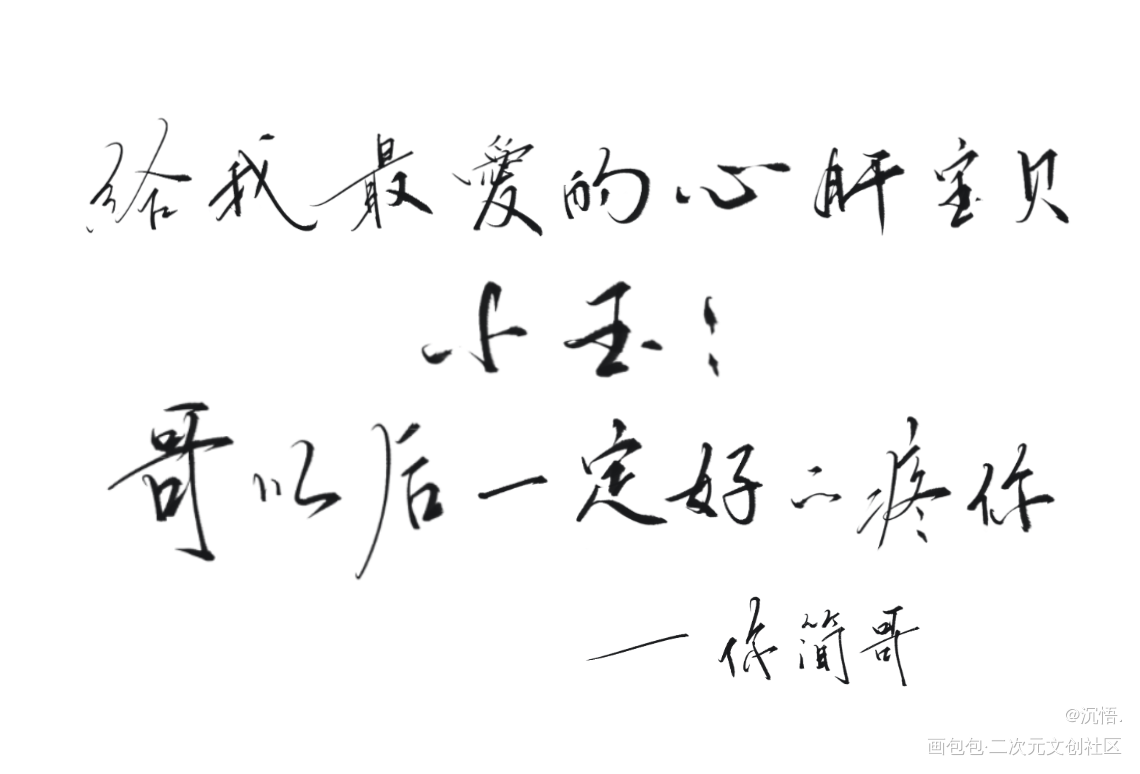 給我最愛的心肝宝贝
小玉：
哥以后一定好二疼你
一你简哥
@沉悟.
画包包·二次元文创社区